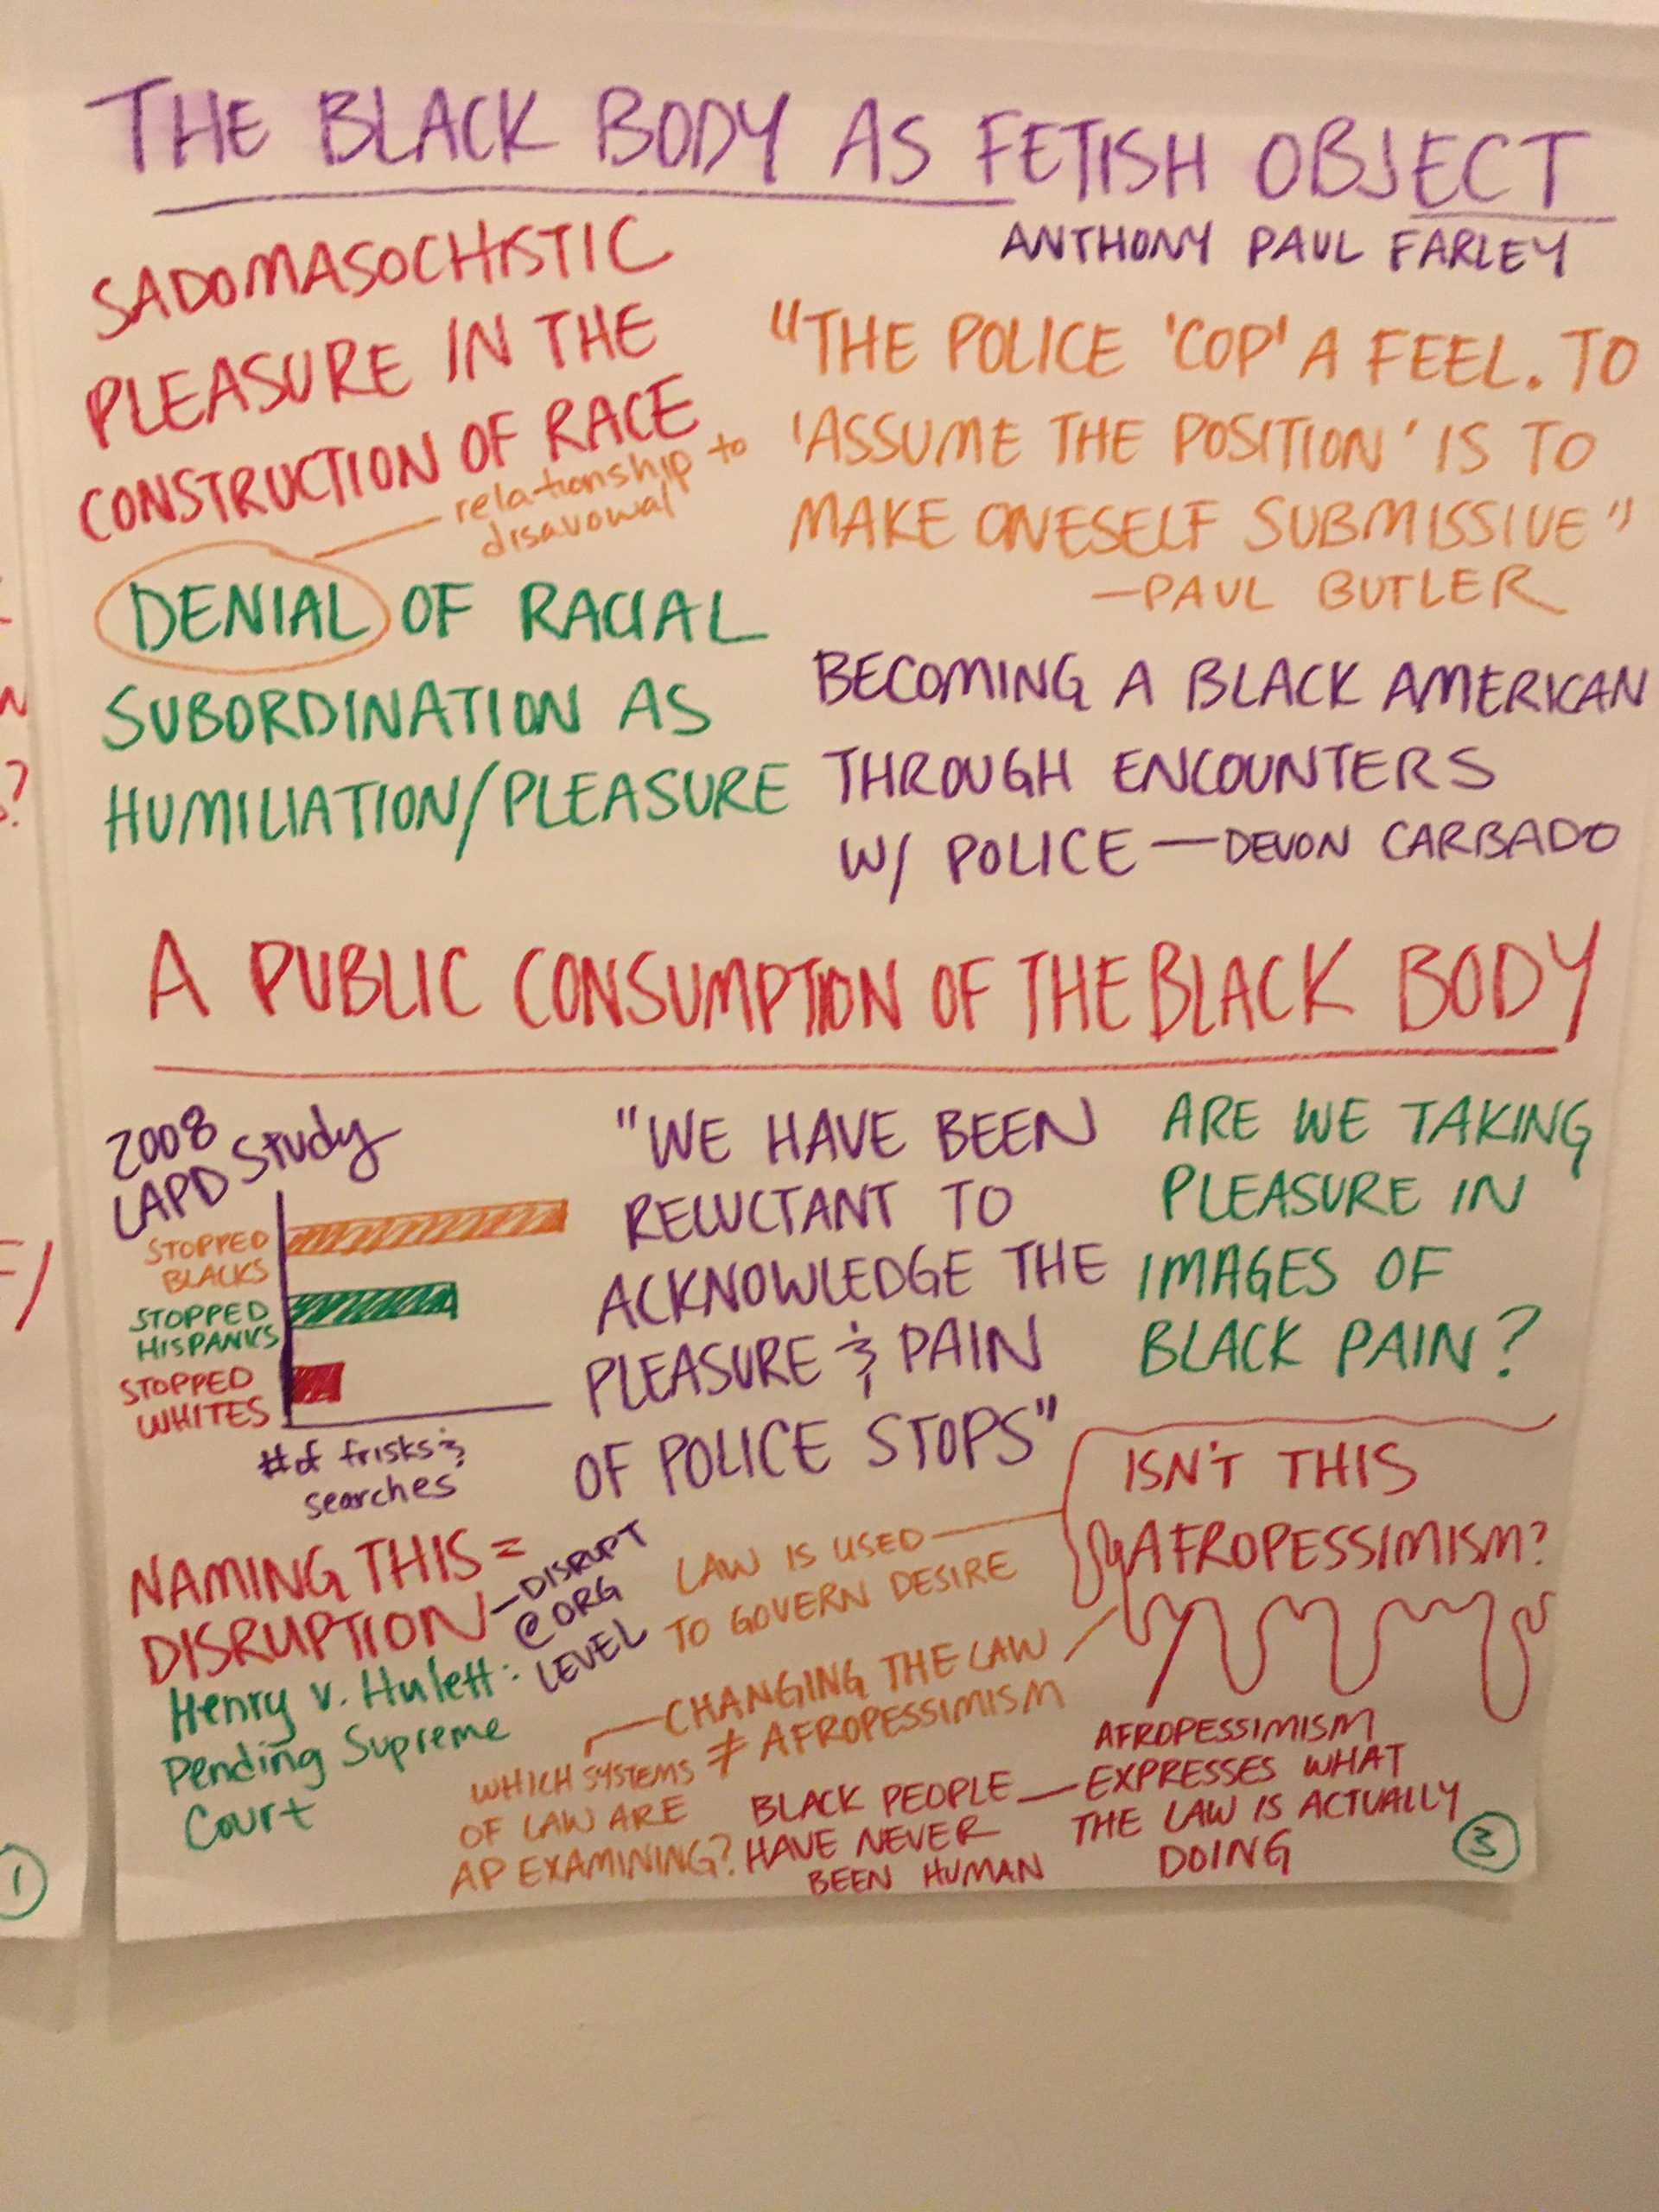 THE BLACK BODY AS FETISH OBJECT
ANTHONY PAUL FARLEY
SADOMASOCHISTIC
PLEASURE IN THE
CONSTRUCTION OF RACE
relationship to
disavowal
DENIAL OF RACIAL
SUBORDINATION AS
HUMILIATION/PLEASURE
"THE POLICE 'COP' A FEEL. TO
'ASSUME THE POSITION' IS TO
MAKE ONESELF SUBMISSIVE"
—PAUL BUTLER
BECOMING A BLACK AMERICAN
THROUGH ENCOUNTERS
W/ POLICE — DEVON CARBADO
A PUBLIC CONSUMPTION OF THE BLACK BODY
2008
LAPD Study
STOPPED
BLACKS
STOPPED
HISPANICS
STOPPED
WHITES
# of frisks &
searches
"WE HAVE BEEN
RELUCTANT TO
ACKNOWLEDGE THE
PLEASURE & PAIN
OF POLICE STOPS"
ARE WE TAKING
PLEASURE IN
IMAGES OF
BLACK PAIN?
ISN'T THIS
AFROPESSIMISM?
NAMING THIS =
DISRUPTION
—DISRUPT
@ ORG
LEVEL
Henry v. Hulett:
Pending Supreme
Court
LAW IS USED
TO GOVERN DESIRE
CHANGING THE LAW
≠ AFROPESSIMISM
WHICH SYSTEMS
OF LAW ARE
AP EXAMINING?
BLACK PEOPLE
HAVE NEVER
BEEN HUMAN
AFROPESSIMISM
EXPRESSES WHAT
THE LAW IS ACTUALLY
DOING
3
?
1